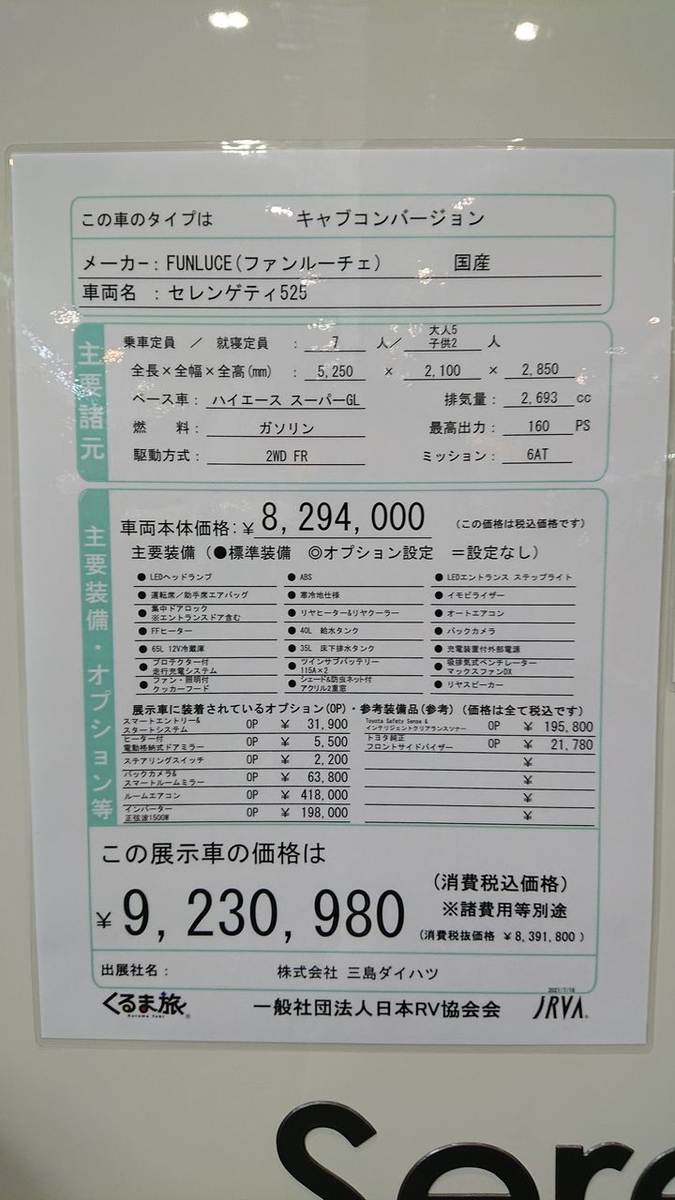 この車のタイプは キャブコンバージョン
メーカー：FUNLUCE(ファンルーチェ) 国産
車両名 ：セレンゲティ525
主要諸元
乗車定員 ／ 就寝定員 ： 7 人／ 大人5 子供2 人
全長×全幅×全高(mm) ： 5,250 × 2,100 × 2,850
ベース車： ハイエース スーパーGL 排気量： 2,693 cc
燃 料： ガソリン 最高出力： 160 PS
駆動方式： 2WD FR ミッション： 6AT
主要装備・オプション等
車両本体価格：￥8,294,000 (この価格は税込価格です)
主要装備（●標準装備 ◎オプション設定 ＝設定なし）
● LEDヘッドランプ ● ABS ● LEDエントランス ステップライト
● 運転席／助手席エアバッグ ● 寒冷地仕様 ● イモビライザー
● 集中ドアロック ※エントランスドア含む ● リヤヒーター&リヤクーラー ● オートエアコン
● FFヒーター ● 40L 給水タンク ● バックカメラ
● 65L 12V冷蔵庫 ● 35L 床下排水タンク ● 充電装置付外部電源
● プロテクター付 走行充電システム ● ツインサブバッテリー 115A×2 ● 吸排気式ベンチレーター マックスファンDX
● ファン・照明付 クッカーフード ● シェード&防虫ネット付 アクリル2重窓 ● リヤスピーカー
展示車に装着されているオプション(OP)・参考装備品(参考) (価格は全て税込です)
スマートエントリー& スタートシステム OP ￥ 31,900 Toyota Safety Sense & インテリジェントクリアランスソナー OP ￥ 195,800
ヒーター付 電動格納式ドアミラー OP ￥ 5,500 トヨタ純正 フロントサイドバイザー OP ￥ 21,780
ステアリングスイッチ OP ￥ 2,200 ￥
バックカメラ& スマートルームミラー OP ￥ 63,800 ￥
ルームエアコン OP ￥ 418,000 ￥
インバーター 正弦波1500W OP ￥ 198,000 ￥
この展示車の価格は
￥9,230,980
(消費税込価格)
※諸費用等別途
(消費税抜価格 ￥8,391,800 )
出展社名： 株式会社 三島ダイハツ
2021/7/16
くるま旅® Kuruma Tabi 一般社団法人日本RV協会会 JRVA®
Sere